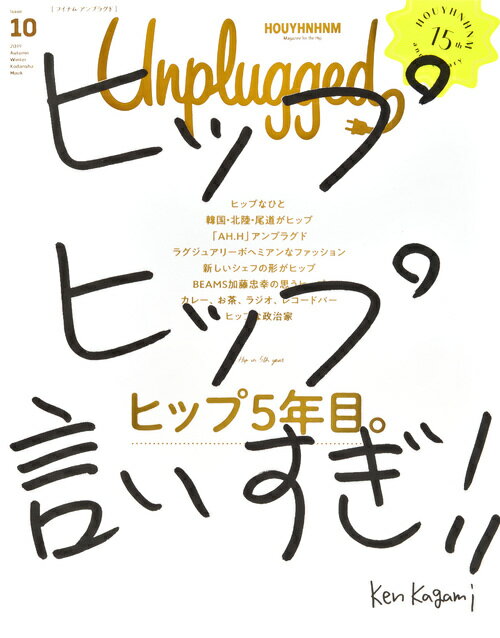 Issue
10
2019
Autumn
Winter
Kodansha
Mook
[ フイナム・アンプラグド ]
HOUYHNHNM
Magazine for the Hip.
Unplugged
HOUYHNHNM
15th
ヒップ
ヒップなひと
韓国・北陸・尾道がヒップ
「AH.H」アンプラグド
ラグジュアリーボヘミアンなファッション
新しいシェフの形がヒップ
BEAMS加藤忠幸の思う
カレー、お茶、ラジオ、レコードバー
ヒップな政治家
ヒップ
Hip in 5th year
ヒップ5年目。
言いすぎ!!
Ken Kagami